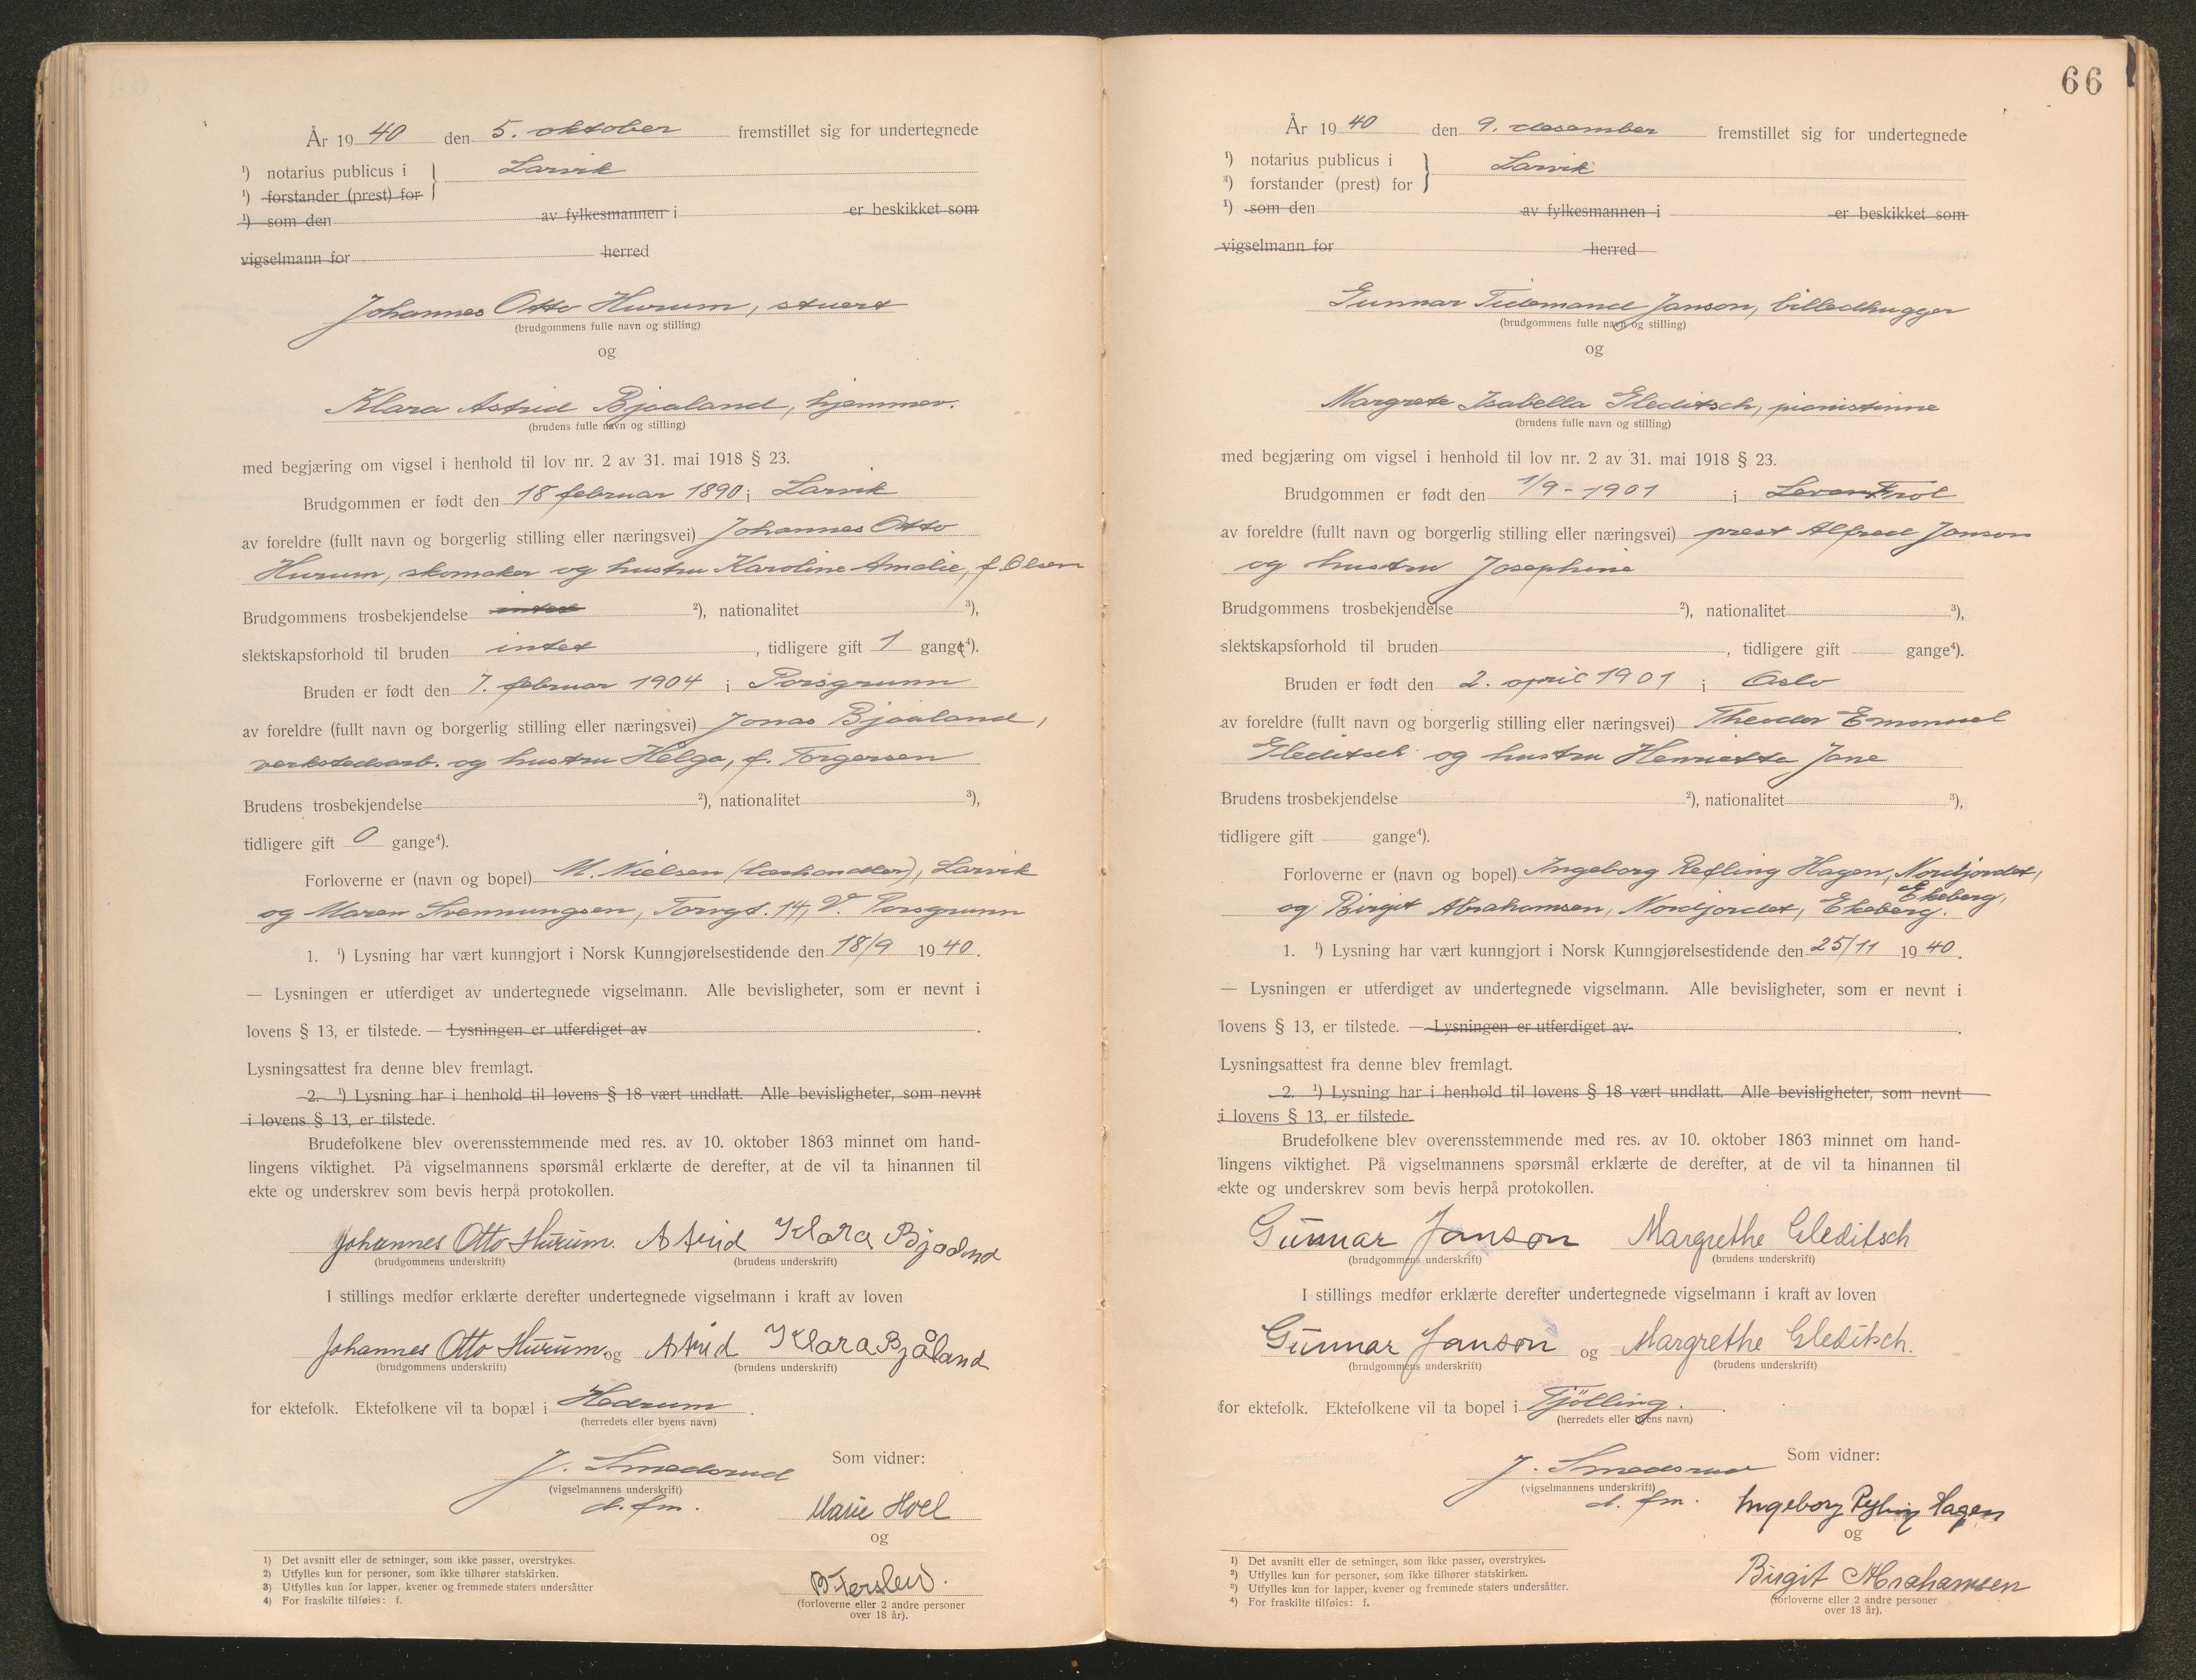 År 19 40 den 5. oktober fremstillet sig for undertegnede
¹) notarius publicus i } Larvik
¹) forstander (prest) for
¹) som den av fylkesmannen i er beskikket som
vigselmann for herred
Johannes Otto Hurum, stuert
(brudgommens fulle navn og stilling)
og
Klara Astrid Bjaaland, hjemmev.
(brudens fulle navn og stilling)
med begjæring om vigsel i henhold til lov nr. 2 av 31. mai 1918 § 23.
Brudgommen er født den 18 februar 1890 i Larvik
av foreldre (fullt navn og borgerlig stilling eller næringsvei) Johannes Otto
Hurum, skomaker og hustru Karoline Amalie, f. Olsen
Brudgommens trosbekjendelse intet ²), nationalitet ³),
slektskapsforhold til bruden intet , tidligere gift 1 gange⁴).
Bruden er født den 7. februar 1904 i Porsgrunn
av foreldre (fullt navn og borgerlig stilling eller næringsvei) Jonas Bjaaland,
verkstedsarb. og hustru Helga, f. Torgersen
Brudens trosbekjendelse ²), nationalitet ³),
tidligere gift 0 gange⁴).
Forloverne er (navn og bopel) M. Nielsen (lærhandler), Larvik
og Maren Svennungsen, Torvgt. 14, V. Porsgrunn
1. ¹) Lysning har vært kunngjort i Norsk Kunngjørelsestidende den 18/9 19 40.
— Lysningen er utferdiget av undertegnede vigselmann. Alle bevisligheter, som er nevnt i
lovens § 13, er tilstede. — Lysningen er utferdiget av .
Lysningsattest fra denne blev fremlagt.
2. ¹) Lysning har i henhold til lovens § 18 vært undlatt. Alle bevisligheter, som nevnt
i lovens § 13, er tilstede.
Brudefolkene blev overensstemmende med res. av 10. oktober 1863 minnet om hand-
lingens viktighet. På vigselmannens spørsmål erklærte de derefter, at de vil ta hinannen til
ekte og underskrev som bevis herpå protokollen.
Johannes Otto Hurum. Astrid Klara Bjaaland
(brudgommens underskrift) (brudens underskrift)
I stillings medfør erklærte derefter undertegnede vigselmann i kraft av loven
Johannes Otto Hurum og Astrid Klara Bjåland
(brudgommens underskrift) (brudens underskrift)
for ektefolk. Ektefolkene vil ta bopæl i Hedrum .
(herredets eller byens navn)
J. Smedsrud Som vidner:
(vigselmannens underskrift)
d. fm. Marie Hoel
og
B Ferslew.
(forloverne eller 2 andre personer
over 18 år).
¹) Det avsnitt eller de setninger, som ikke passer, overstrykes.
²) Utfylles kun for personer, som ikke tilhører statskirken.
³) Utfylles kun for lapper, kvener og fremmede staters undersåtter
⁴) For fraskilte tilføies: f.
66
År 19 40 den 9. desember fremstillet sig for undertegnede
¹) notarius publicus i } Larvik
¹) forstander (prest) for
¹) som den av fylkesmannen i er beskikket som
vigselmann for herred
Gunnar Tidemand Janson, billedhugger
(brudgommens fulle navn og stilling)
og
Margrete Isabella Gleditsch, pianistinne
(brudens fulle navn og stilling)
med begjæring om vigsel i henhold til lov nr. 2 av 31. mai 1918 § 23.
Brudgommen er født den 1/9 - 1901 i Frol
av foreldre (fullt navn og borgerlig stilling eller næringsvei) prest Alfred Janson
og hustru Josephine
Brudgommens trosbekjendelse ²), nationalitet ³),
slektskapsforhold til bruden , tidligere gift gange⁴).
Bruden er født den 2. april 1901 i Oslo
av foreldre (fullt navn og borgerlig stilling eller næringsvei) Theodor Emanuel
Gleditsch og hustru Henriette Jane
Brudens trosbekjendelse ²), nationalitet ³),
tidligere gift gange⁴).
Forloverne er (navn og bopel) Ingeborg Refling Hagen, Nordjordet,
Ekeberg,
og Birgit Abrahamsen, Nordjordet, Ekeberg.
1. ¹) Lysning har vært kunngjort i Norsk Kunngjørelsestidende den 25/11 19 40.
— Lysningen er utferdiget av undertegnede vigselmann. Alle bevisligheter, som er nevnt i
lovens § 13, er tilstede. — Lysningen er utferdiget av .
Lysningsattest fra denne blev fremlagt.
2. ¹) Lysning har i henhold til lovens § 18 vært undlatt. Alle bevisligheter, som nevnt
i lovens § 13, er tilstede.
Brudefolkene blev overensstemmende med res. av 10. oktober 1863 minnet om hand-
lingens viktighet. På vigselmannens spørsmål erklærte de derefter, at de vil ta hinannen til
ekte og underskrev som bevis herpå protokollen.
Gunnar Janson Margrethe Gleditsch
(brudgommens underskrift) (brudens underskrift)
I stillings medfør erklærte derefter undertegnede vigselmann i kraft av loven
Gunnar Janson og Margrethe Gleditsch.
(brudgommens underskrift) (brudens underskrift)
for ektefolk. Ektefolkene vil ta bopel i Tjölling. .
(herredets eller byens navn)
J. Smedsrud Som vidner:
(vigselmannens underskrift)
d. fm. Ingeborg Refling Hagen
og
Birgit Abrahamsen
(forloverne eller 2 andre personer
over 18 år).
¹) Det avsnitt eller de setninger, som ikke passer, overstrykes.
²) Utfylles kun for personer, som ikke tilhører statskirken.
³) Utfylles kun for lapper, kvener og fremmede staters undersåtter.
⁴) For fraskilte tilføies: f.